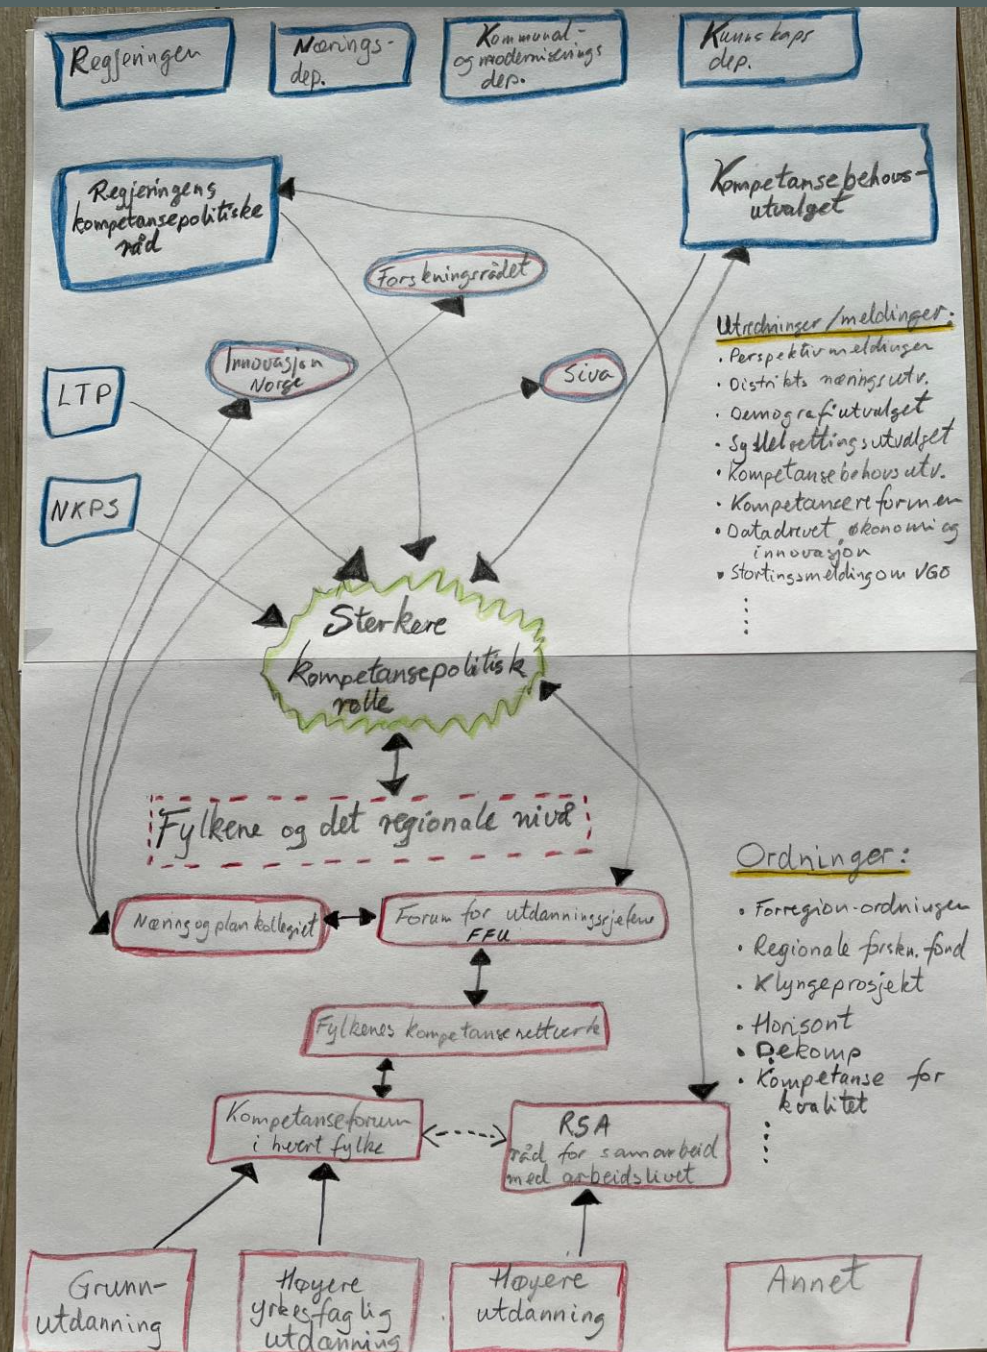 Regjeringen
Nærings-
dep.
Kommunal-
og moderniserings
dep.
Kunnskaps
dep.
Regjeringens
kompetansepolitiske
råd
Kompetansebehovs-
utvalget
Forskningsrådet
Innovasjon
Norge
Siva
LTP
NKPS
Utredninger/meldinger:
• Perspektivmeldingen
• Distrikts næringsutv.
• Demografiutvalget
• Sysselsettingsutvalget
• Kompetansebehovsutv.
• Kompetansereformen
• Datadrevet økonomi og
innovasjon
• Stortingsmelding om VGO
Sterkere
kompetansepolitisk
rolle
Fylkene og det regionale nivå
Næring og plan kollegiet
Forum for utdanningssjefene
FFU
Fylkenes kompetansenettverk
Kompetanseforum
i hvert fylke
RSA
råd for samarbeid
med arbeidslivet
Ordninger:
• Forregion-ordningen
• Regionale forskn. fond
• Klyngeprosjekt
• Horisont
• Dekomp
• Kompetanse for
kvalitet
Grunn-
utdanning
Høyere
yrkesfaglig
utdanning
Høyere
utdanning
Annet